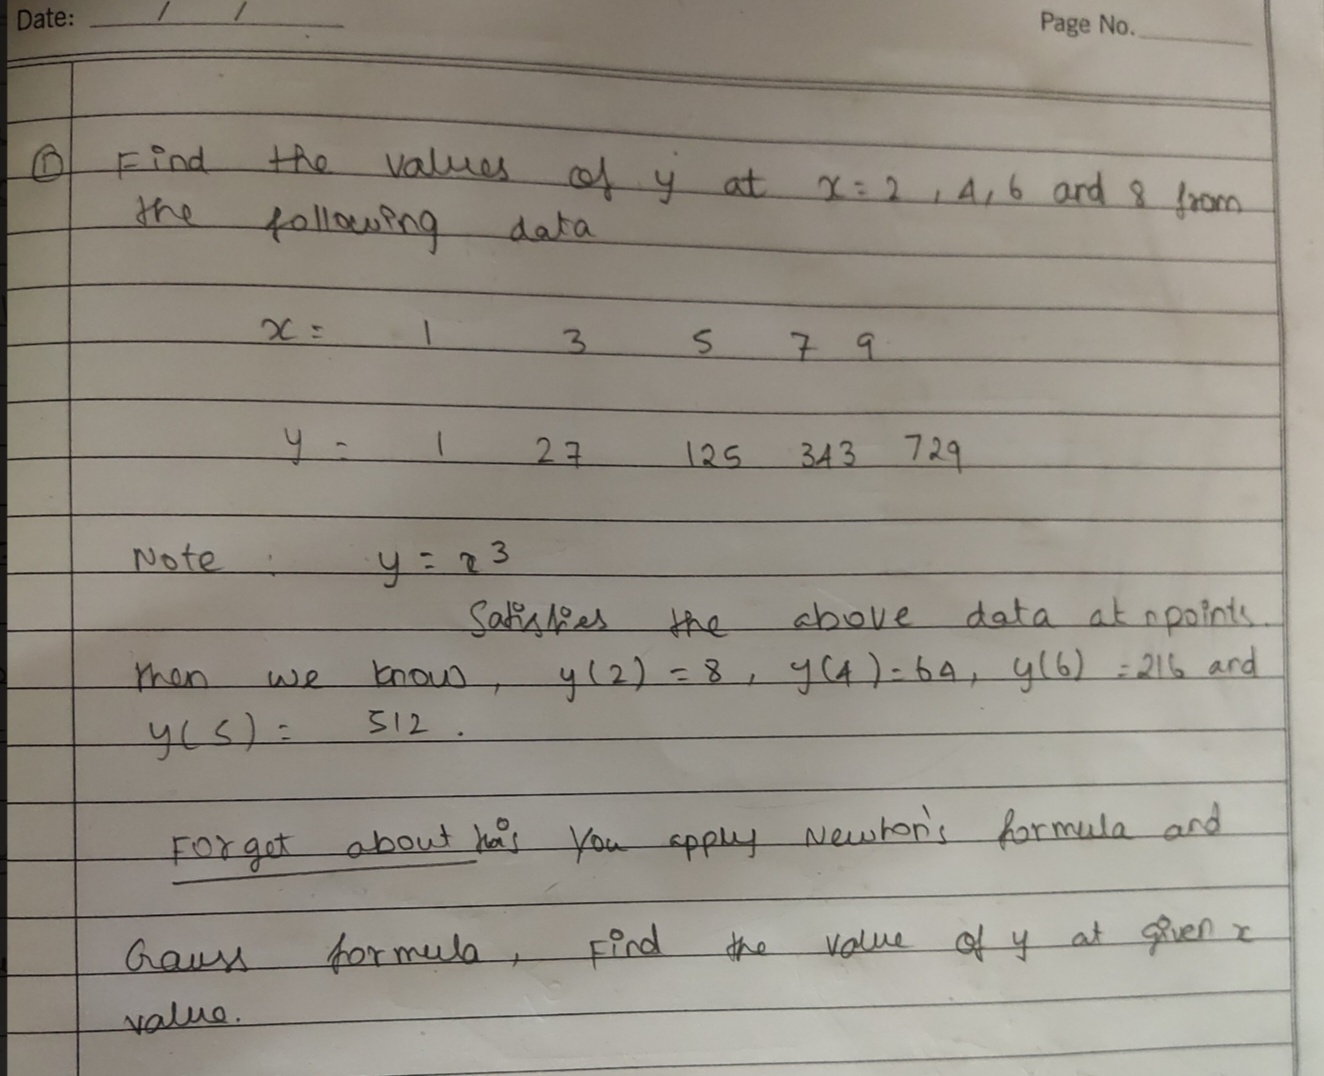 Date: / /
Page No.
① Find the values of y at x = 2, 4, 6 and 8 from
the following data
x = 1 3 5 7 9
y = 1 27 125 343 729
Note : y = x³
Satisfies the above data at n points.
Then we know, y(2) = 8, y(4) = 64, y(6) = 216 and
y(5) = 512.
Forget about this You apply Newton's formula and
Gauss formula, Find the value of y at given x
value.